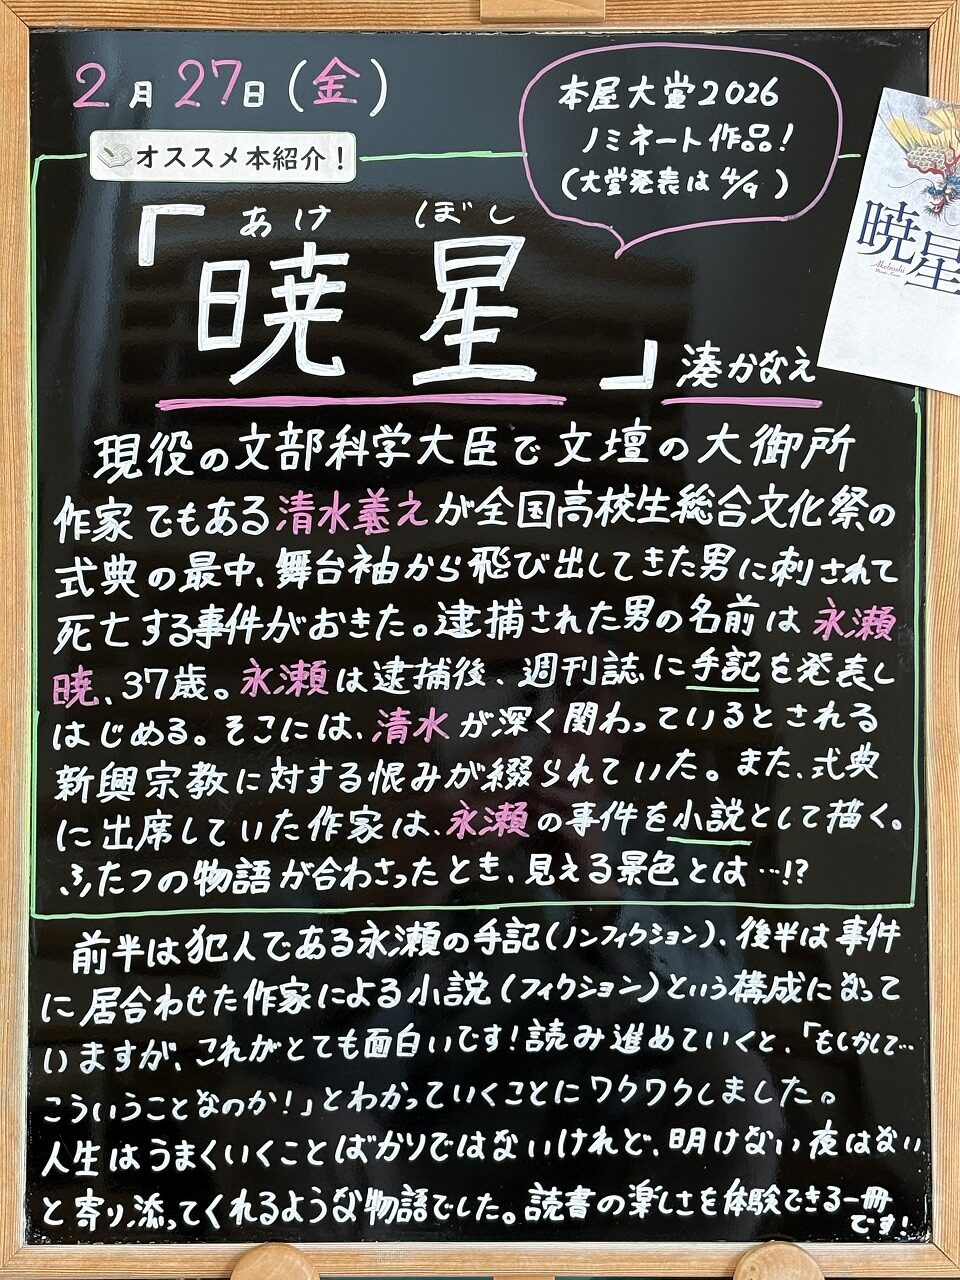 2月27日(金)
オススメ本紹介！
本屋大賞2026
ノミネート作品！
(大賞発表は4/9)
あけ ぼし
『暁星』湊かなえ
暁星
Akeboshi
現役の文部科学大臣で文壇の大御所
作家でもある清水義之が全国高校生総合文化祭の
式典の最中、舞台袖から飛び出してきた男に刺されて
死亡する事件がおきた。逮捕された男の名前は永瀬
暁、37歳。永瀬は逮捕後、週刊誌に手記を発表し
はじめる。そこには、清水が深く関わっているとされる
新興宗教に対する恨みが綴られていた。また、式典
に出席していた作家は、永瀬の事件を小説として描く。
ふたつの物語が合わさったとき、見える景色とは…!?
前半は犯人である永瀬の手記(ノンフィクション)、後半は事件
に居合わせた作家による小説(フィクション)という構成になって
いますが、これがとても面白いです！読み進めていくと、「もしかして…
こういうことなのか！」とわかっていくことにワクワクしました。
人生はうまくいくことばかりではないけれど、明けない夜はない
と寄り添ってくれるような物語でした。読書の楽しさを体験できる一冊
です！